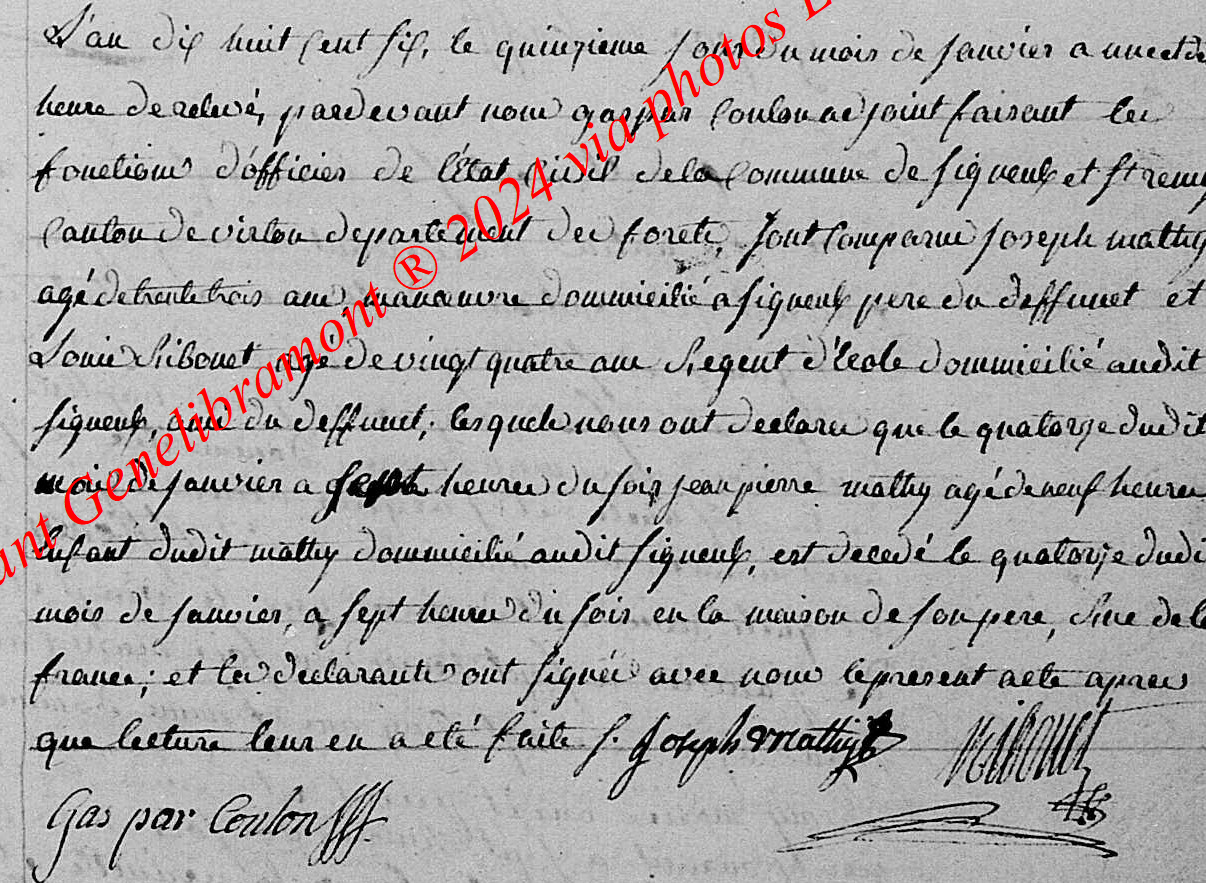 L'an dix huit cent six, le quinzieme jour du mois de janvier a une et de
heure de relevé, pardevant nous gaspar Coulon adjoint faisant les
fonctions d'officier de l'État Civil de la Commune de signeulx et st remy
Canton de virton departement des forets, sont Comparus joseph mathy
agé de trente trois ans, manoeuvre dommicilié a signeulx pere du deffunct et
Louis Ribonet agé de vingt quatre ans Regent d'École dommicilié audit
signeulx, ami du deffunct, lesquels nous ont declaré que le quatorze dudit
mois de janvier a sept heures du soir, jean pierre mathy agé de neuf heures
Enfant dudit mathy dommicilié audit signeulx, est decedé le quatorze dudi
mois de janvier, a sept heures du soir en la maison de son pere, sise de la
france; et les declarants ont signés avec nous le present acte apres
que lecture leur en a eté faite /. Joseph Mathy Ribonet
Gaspar Coulon
ant Genelibramont ® 2024 via photos L